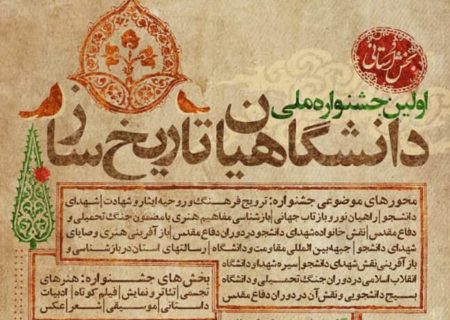 بخش استانی
اولین جشنواره ملی
دانشگاهیان تاریخ ساز
محورهای موضوعی جشنواره: ترویج فرهنگ و روحیه ایثار و شهادت | شهدای
دانشجو | راهیان نور و بازتاب جهانی | بازشناسی مفاهیم هنری با مضمون جنگ تحمیلی و
دفاع مقدس | نقش خانواده شهدای دانشجو در دوران دفاع مقدس | بازآفرینی هنری وصایای
شهدای دانشجو | جبهه بین المللی مقاومت و دانشگاه | رسالتهای استان در بازشناسی و
بازآفرینی نقش شهدای دانشجو | سیره شهدا و دانشگاه
انقلاب اسلامی در دوران جنگ تحمیلی و دانشگاه
بسیج دانشجویی و نقش آن در دوران دفاع مقدس
بخش های جشنواره: هنرهای
تجسمی | تئاتر و نمایش | فیلم کوتاه | ادبیات
داستانی | موسیقی | شعر | عکس